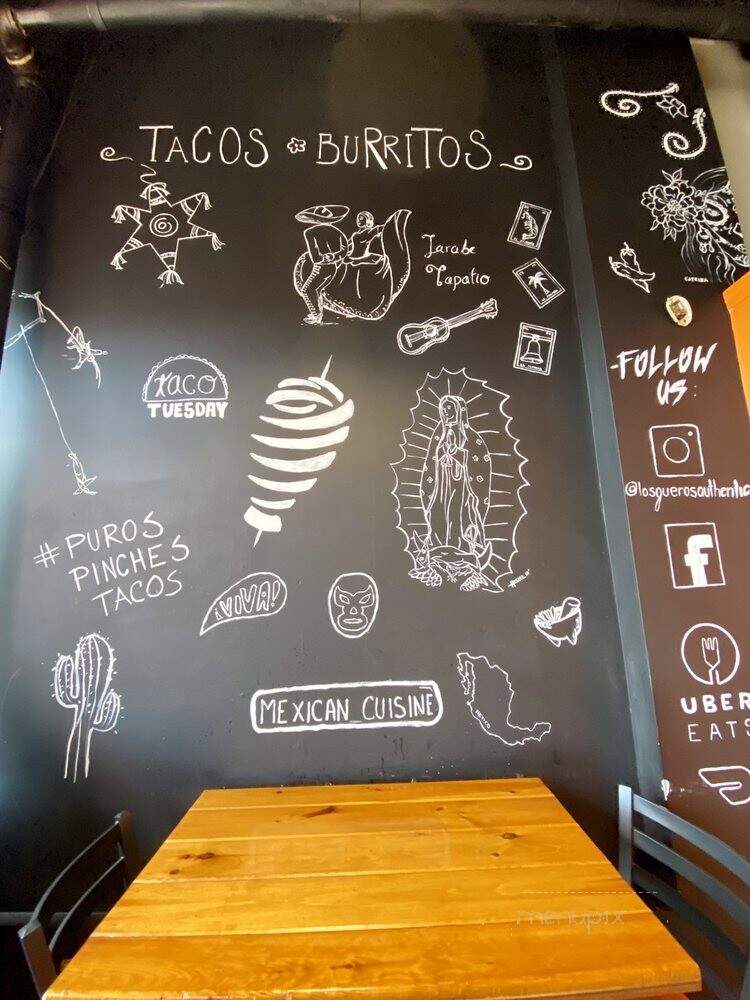 TACOS BURRITOS
Jarabe
Tapatio
taco
TUESDAY
# PUROS
PINCHES
TACOS
¡VIVA!
MEXICAN CUISINE
MEXICO
CATRINA
-FOLLOW
US:
@losguerosauthentic
f
UBER
EATS
menupix